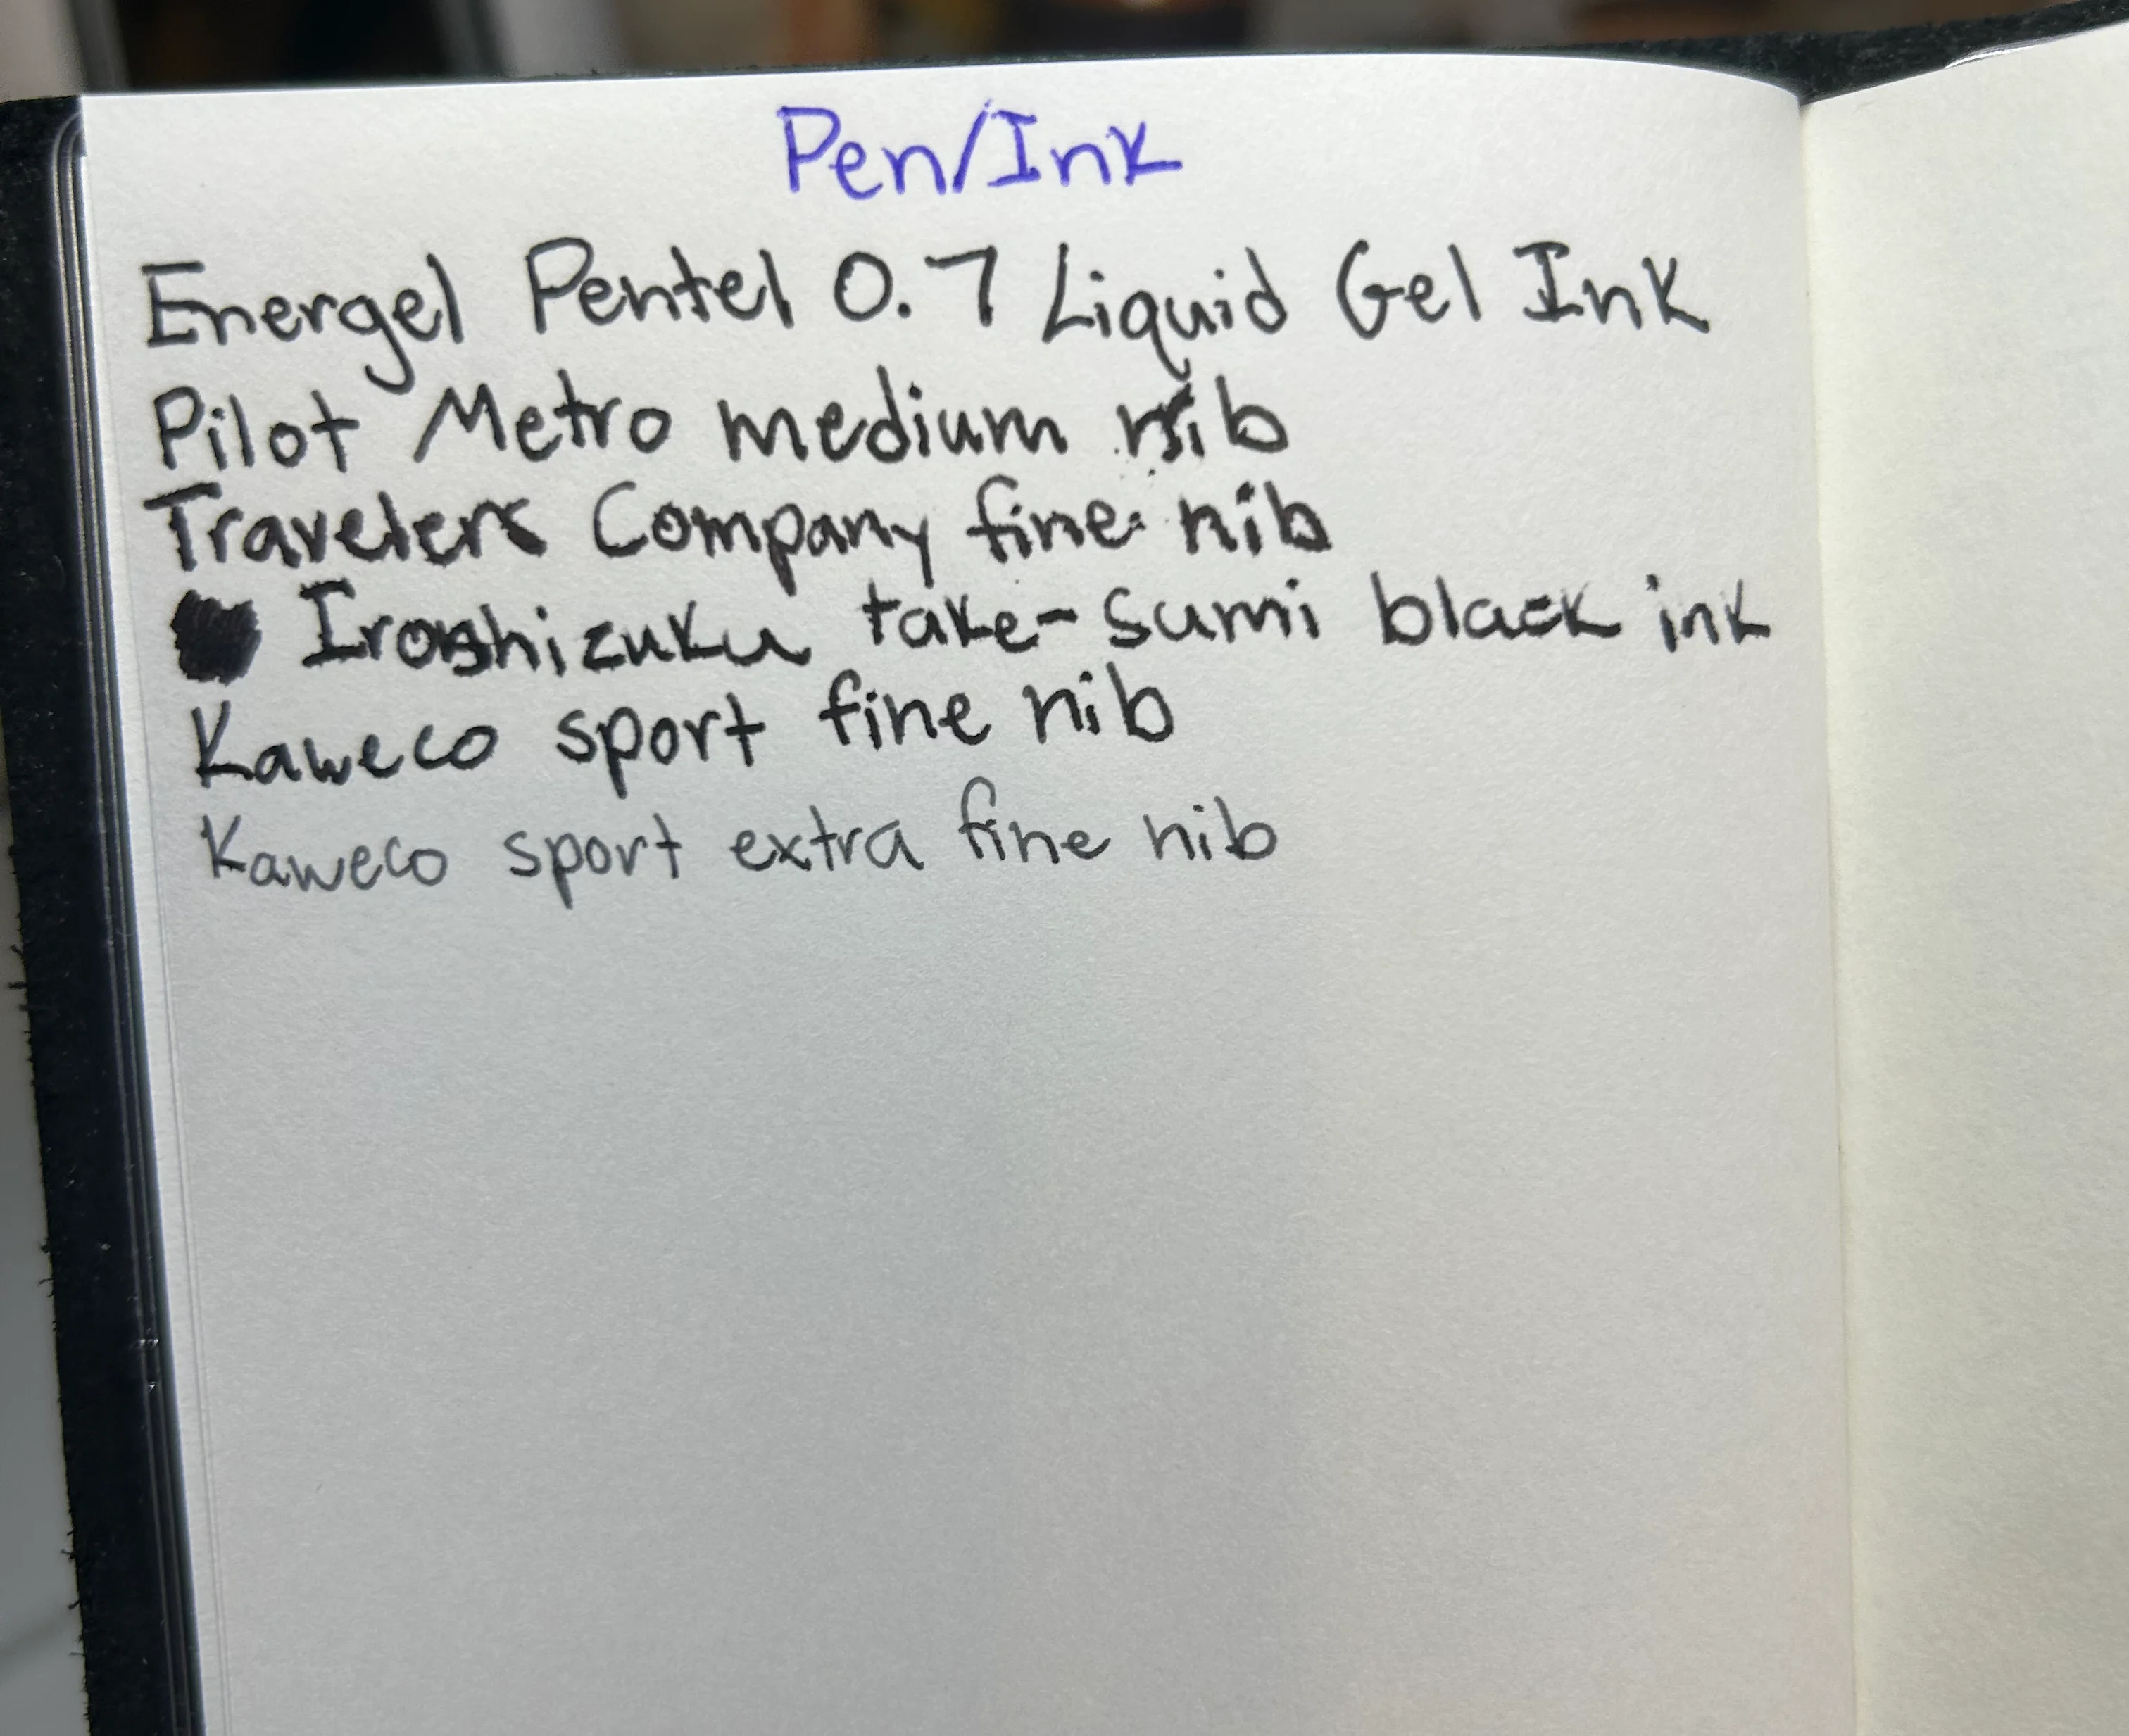 Pen/Ink
Energel Pentel 0.7 Liquid Gel Ink
Pilot Metro medium nib
Travelers Company fine nib
Iroshizuku take-sumi black ink
Kaweco sport fine nib
Kaweco sport extra fine nib